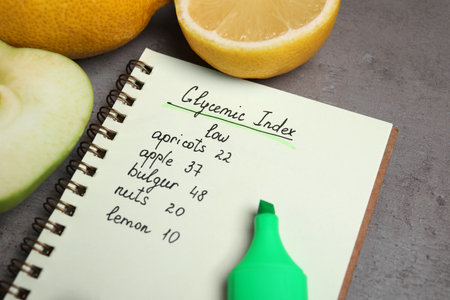 Glycemic Index
low
apricots 22
apple 37
bulgur 48
nuts 20
lemon 10